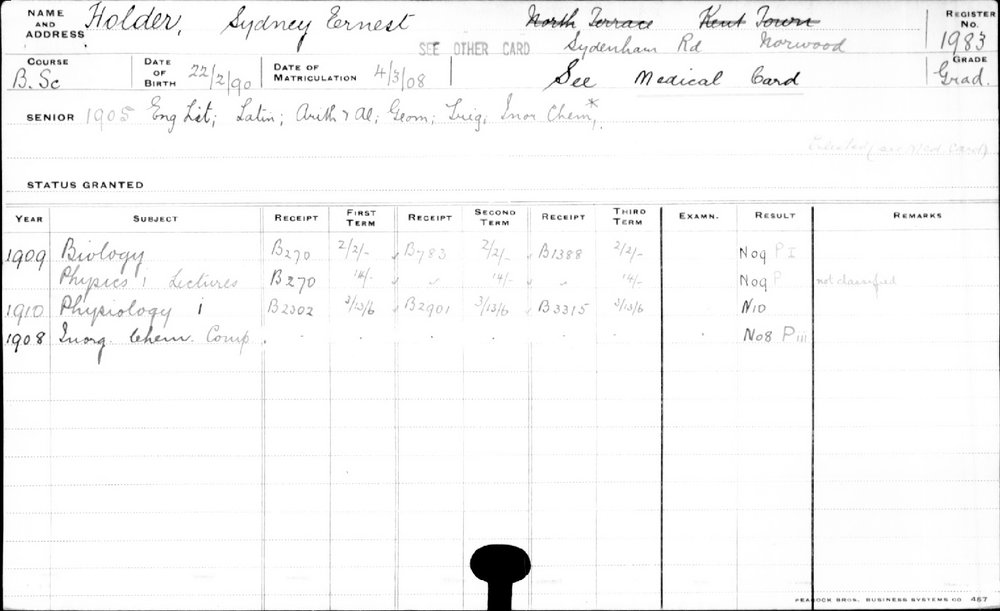 NAME AND ADDRESS Holder, Sydney Ernest North Terrace Kent Town REGISTER No. 1983
SEE OTHER CARD Sydenham Rd Norwood
COURSE B.Sc DATE OF BIRTH 22/2/90 DATE OF MATRICULATION 4/3/08 See Medical Card GRADE Grad.
SENIOR 1905 Eng Lit; Latin; Arith & Al; Geom; Trig; Inor Chem*;
(see Med. Card)
STATUS GRANTED
YEAR SUBJECT RECEIPT FIRST TERM RECEIPT SECOND TERM RECEIPT THIRD TERM EXAMN. RESULT REMARKS
1909 Biology B270 2/2/- B783 2/2/- B1388 2/2/- No9 PI
Physics 1 Lectures B270 14/- " " 14/- " 14/- No9 P not classified
1910 Physiology 1 B2302 3/13/6 B2901 3/13/6 B3315 3/13/6 N10
1908 Inorg. Chem. Comp . . . . . . . No8 PIII
PEACOCK BROS. BUSINESS SYSTEMS CO. 487